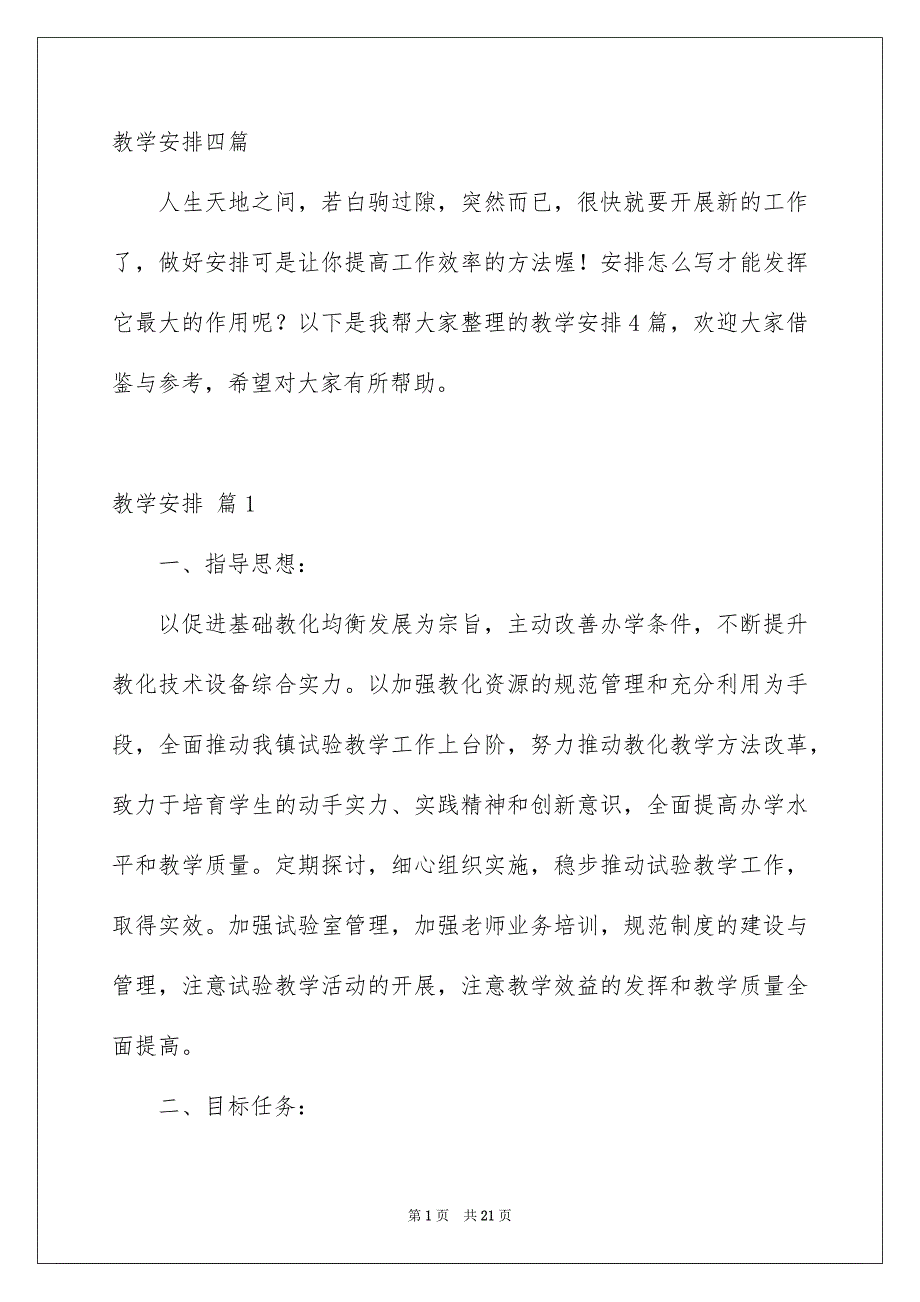 教学安排四篇
人生天地之间，若白驹过隙，突然而已，很快就要开展新的工作
了，做好安排可是让你提高工作效率的方法喔！安排怎么写才能发挥
它最大的作用呢？以下是我帮大家整理的教学安排 4 篇，欢迎大家借
鉴与参考，希望对大家有所帮助。
教学安排 篇 1
一、指导思想：
以促进基础教化均衡发展为宗旨，主动改善办学条件，不断提升
教化技术设备综合实力。以加强教化资源的规范管理和充分利用为手
段，全面推动我镇试验教学工作上台阶，努力推动教化教学方法改革，
致力于培育学生的动手实力、实践精神和创新意识，全面提高办学水
平和教学质量。定期探讨，细心组织实施，稳步推动试验教学工作，
取得实效。加强试验室管理，加强老师业务培训，规范制度的建设与
管理，注意试验教学活动的开展，注意教学效益的发挥和教学质量全
面提高。
二、目标任务：
第 1 页 共 21 页